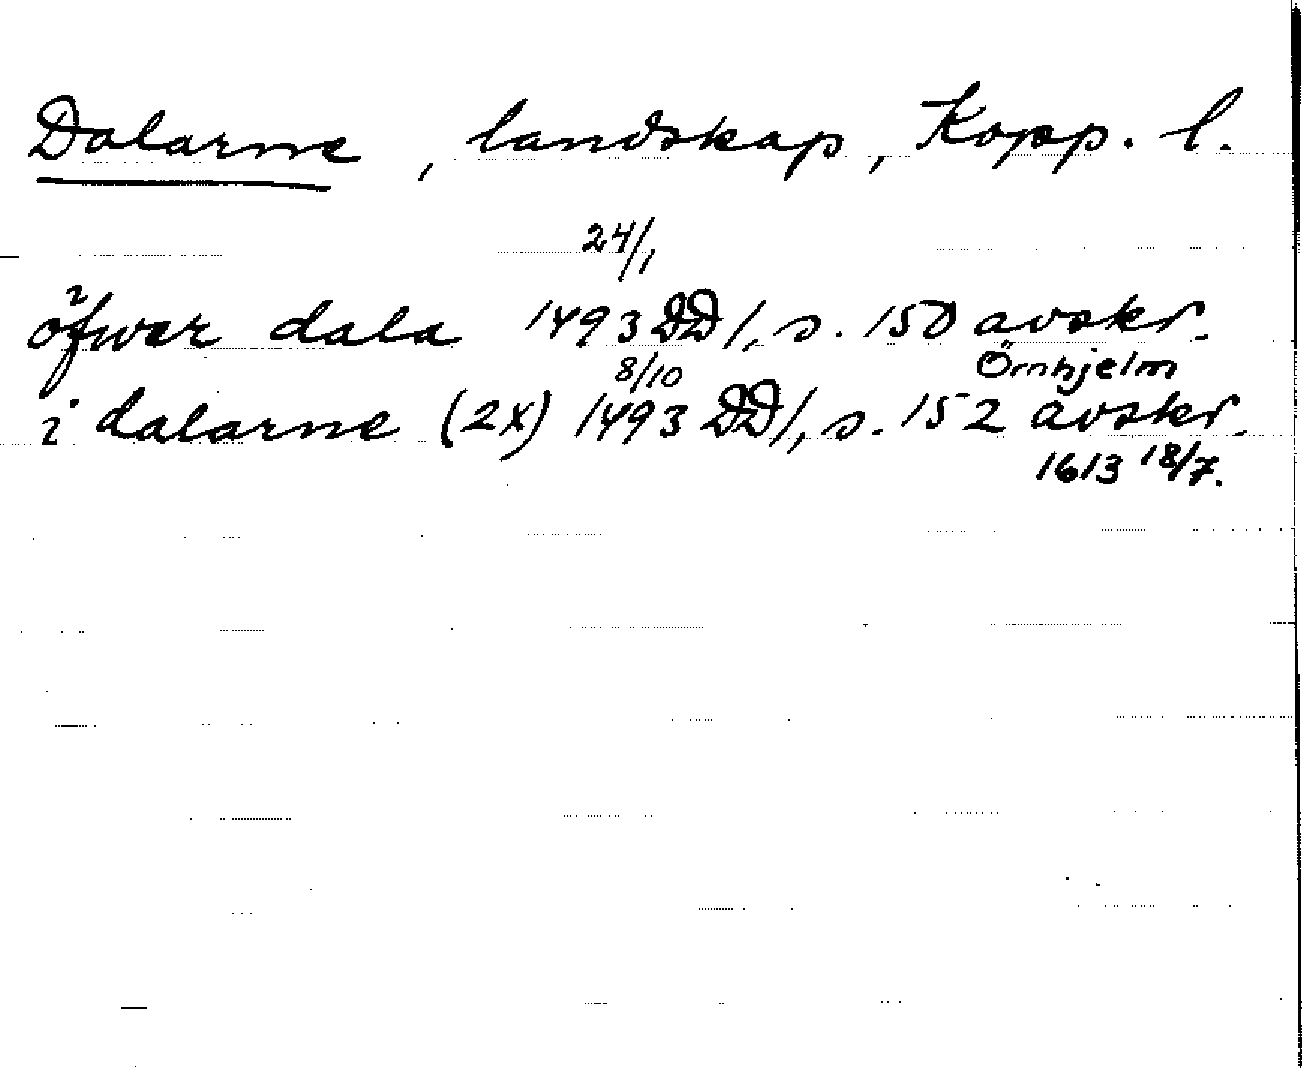 Dalarne, landskap, Kopp. l.
24/1
öfwer dala 1493 DD1, s. 150 avskr.
8/10 Örnhjelm
i dalarne (2x) 1493 DD1, s. 152 avskr.
1613 18/7.